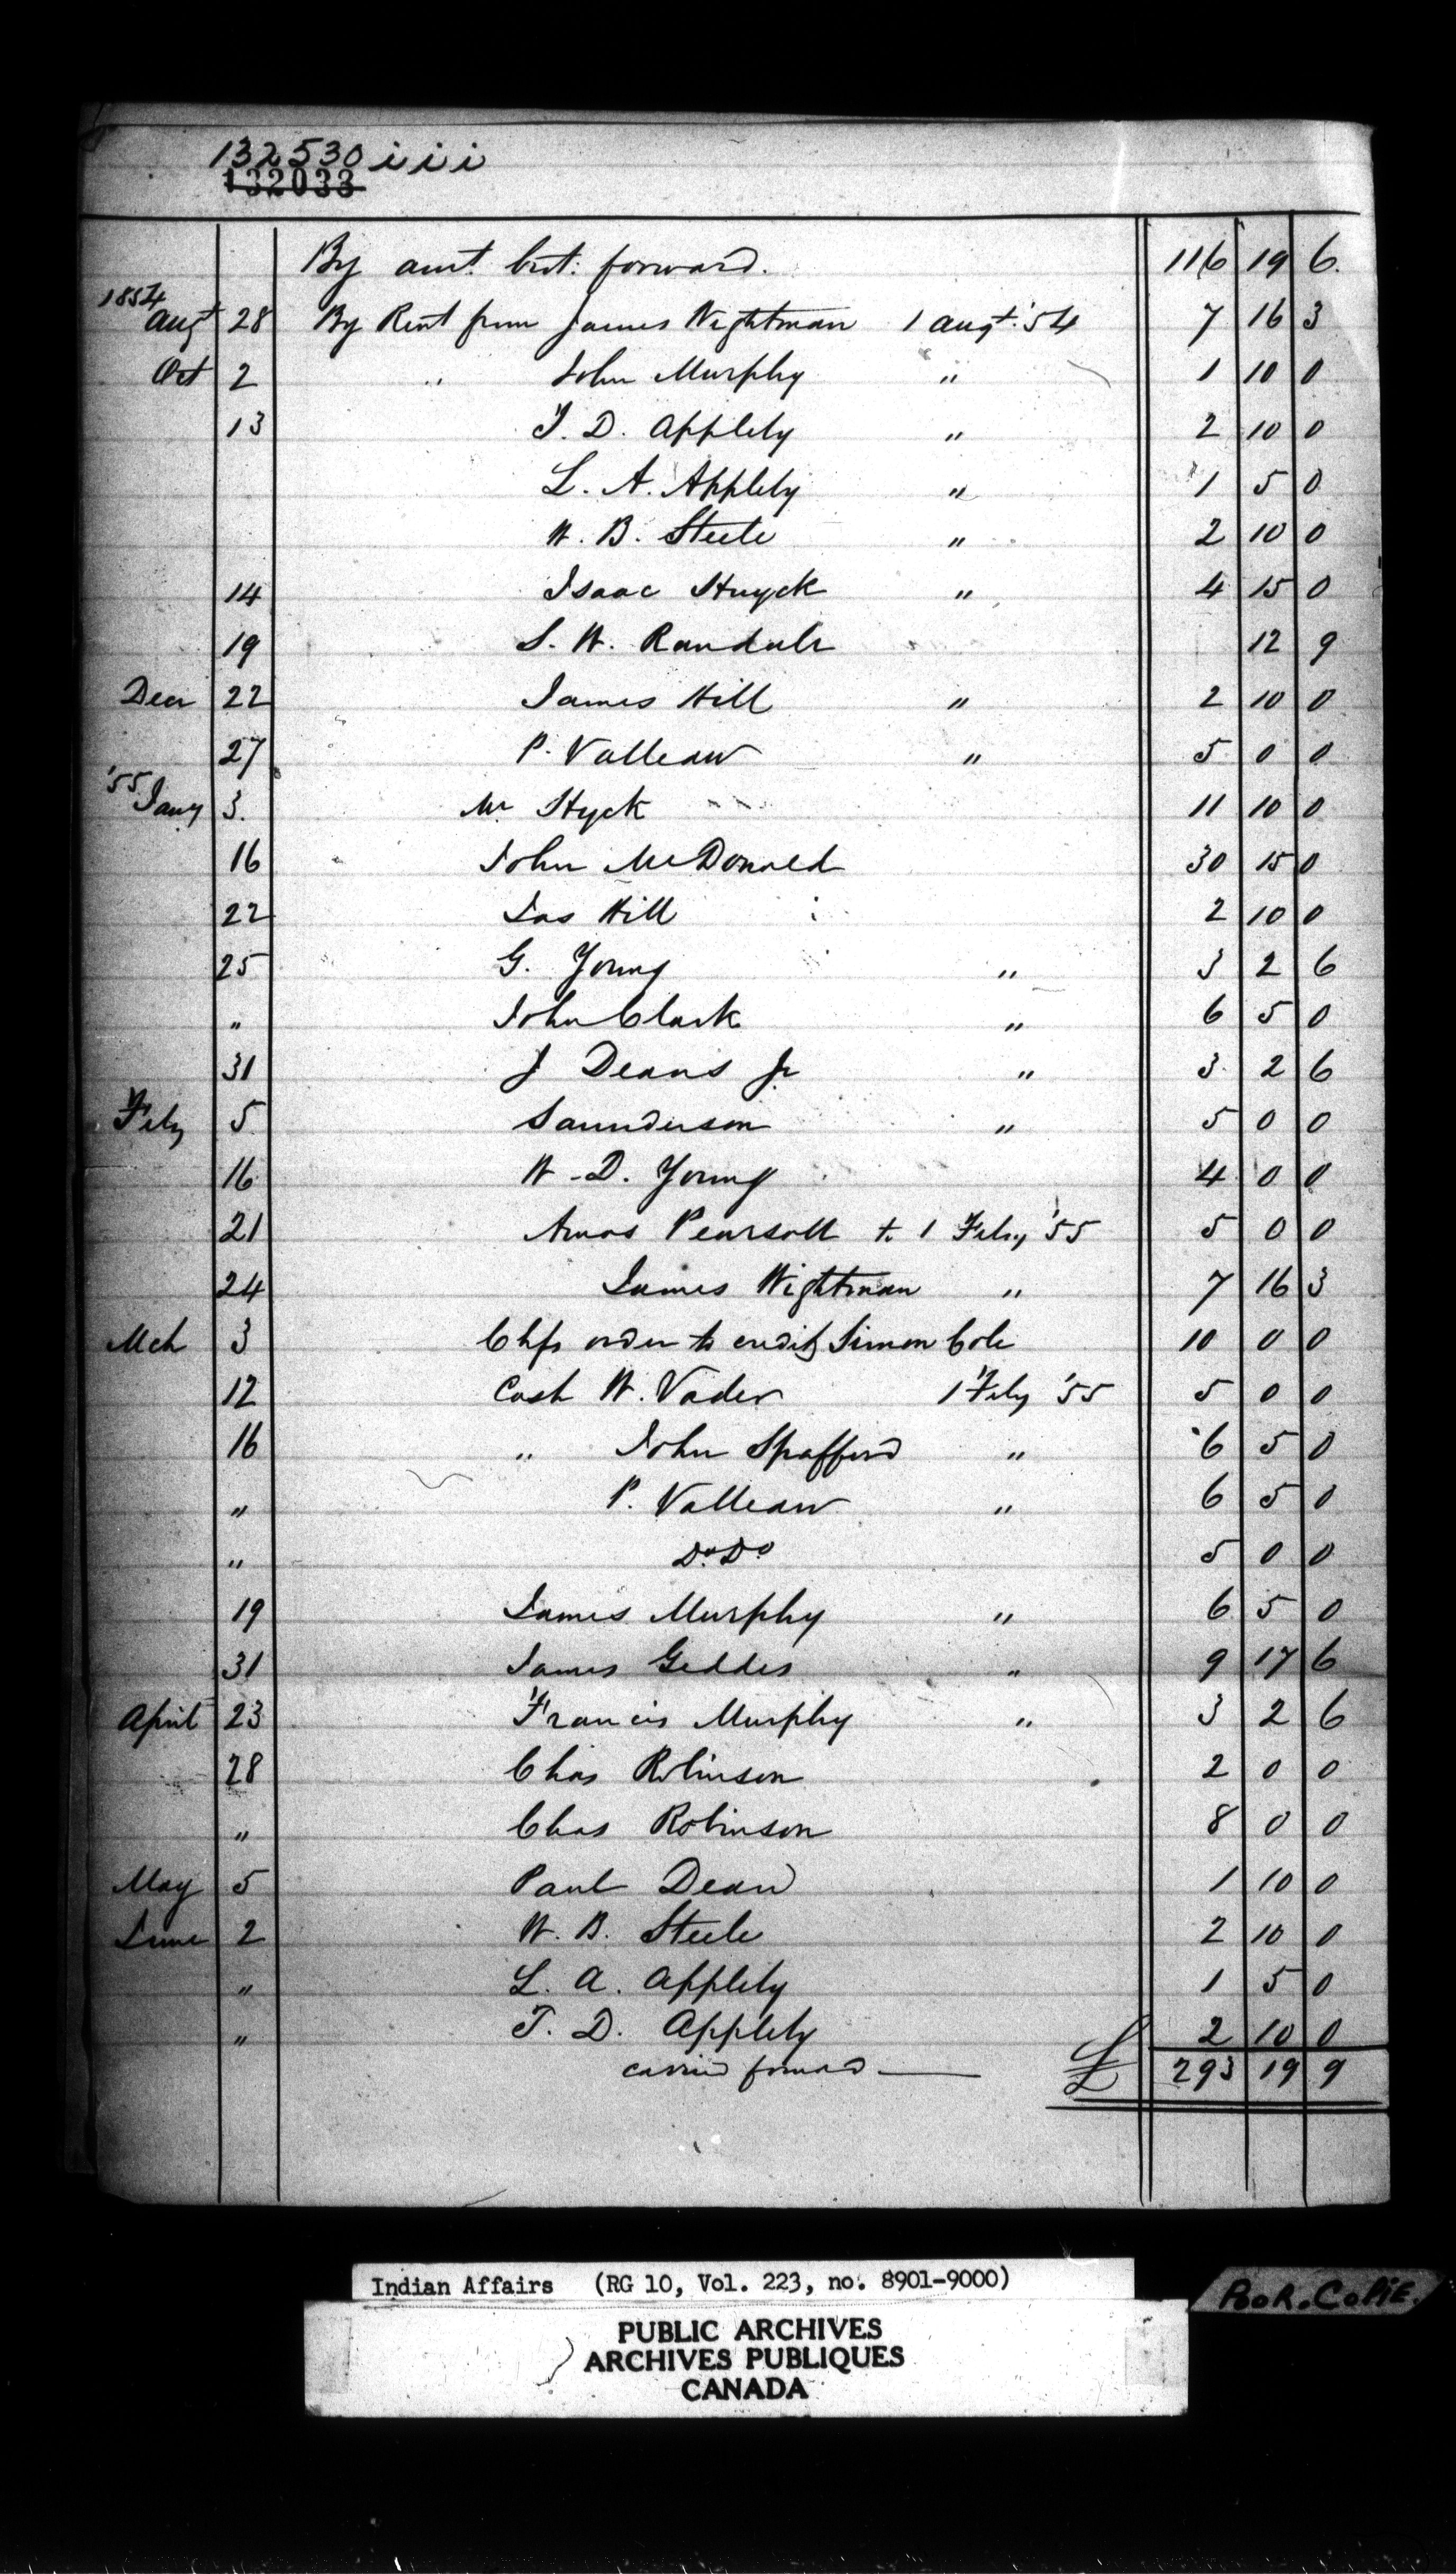 132530 iii
132033
By amt. brt. forward. 116 19 6.
1854
Augt 28 By Rent from James Wightman 1 Augt. '54 7 16 3
Oct 2 " John Murphy " 1 10 0
13 T. D. Appleby " 2 10 0
L. A. Appleby " 1 5 0
W. B. Steele " 2 10 0
14 Isaac Huyck " 4 15 0
19 S. W. Randall 12 9
Decr 22 James Hill " 2 10 0
27 P. Valleau " 5 0 0
'55 Jany 3. Mr Hyck 11 10 0
16 John McDonald 30 15 0
22 Jas Hill 2 10 0
25 G. Young " 3 2 6
" John Clark " 6 5 0
31 J Deans Jr " 3 2 6
Feby 5 Saunderson " 5 0 0
16 W. D. Young 4 0 0
21 Amos Pearsall to 1 Feby '55 5 0 0
24 James Wightman " 7 16 3
Mch 3 Chfs order to credit Simon Cole 10 0 0
12 Cash W. Vader 1 Feby '55 5 0 0
16 " John Spafford " 6 5 0
" P. Valleau " 6 5 0
" Do. Do 5 0 0
19 James Murphy " 6 5 0
31 James Geddes " 9 17 6
April 23 Francis Murphy " 3 2 6
28 Chas Robinson 2 0 0
" Chas Robinson 8 0 0
May 5 Paul Dean 1 10 0
June 2 W. B. Steele 2 10 0
" L. A. Appleby 1 5 0
" T. D. Appleby 2 10 0
carried forward — £ 293 19 9
Indian Affairs (RG 10, Vol. 223, no. 8901-9000)
PooR. CoPiE.
PUBLIC ARCHIVES
ARCHIVES PUBLIQUES
CANADA